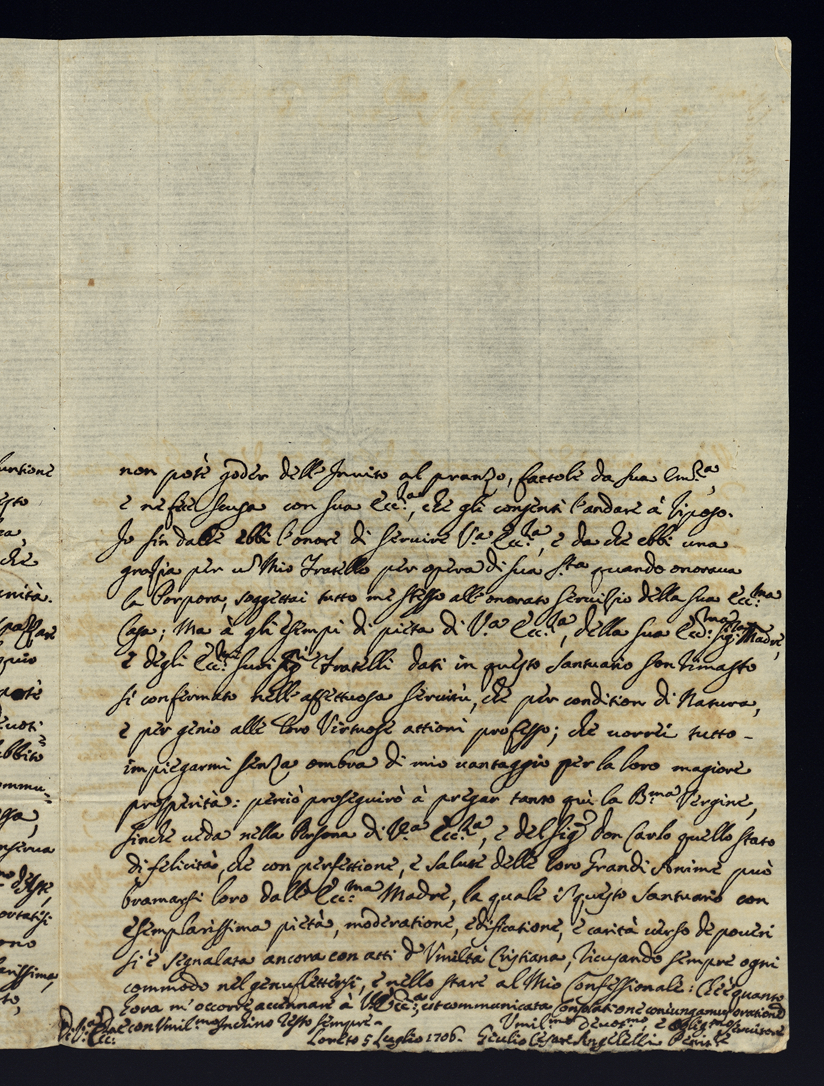 non potè goder dell'Invito al pranzo, fattole da sua Em.za,
e ne fece scusa con sua Ecc.za, che gli consentì l'andare à riposo.
Io fin da che ebbi l'onore di servire V.a Ecc.za, e da che ebbi una
grazia per un Mio Fratello per opera di sua S.tà quando onorava
la Porpora, soggettai tutto me stesso all'onorato servizio della sua Ecc.ma
Casa; Ma à gli esempi di pietà di V.a Ecc.za, della sua Ecc.ma Sig.ra Madre,
e degli Ecc.mi suoi Sig.ri Fratelli dati in questo Santuario son rimasto
sì confermato nell'affettuosa servitù, che per condition di Natura,
e per genio alle loro Virtuose attioni professo; che vorrei tutto-
impiegarmi senza ombra di mio vantaggio per la loro magiore
prosperità: perciò proseguirò à pregar tanto quì la B.ma Vergine,
finche veda nella Persona di V.a Ecc.za, e del Sig.r Don Carlo quello stato
di felicità, che con perfettione, e salute delle loro Grandi Anime può
bramarsi loro dall'Ecc.ma Madre, la quale in questo Santuario con
esemplarissima pietà, moderatione, edificatione, e carità verso de poveri
si è segnalata ancora con atti d'Umiltà Cristiana, ricusando sempre ogni
commodo nel genuflettersi, e nello stare al Mio Confessionale: Che è quanto
hora m'occorre accennare à V. Ecc.za, et communicata consolatione coniungamur oratione
Di V.a Ecc.za con Umil.mo Inchino resto sempre
Loreto 5 Luglio 1706. Umil.mo Devot.mo, e Oblig.mo Servitore
Giulio Cesare Angelelli Penit.re
untione
esto
za,
che
unità.
quio
potè
evoti
ommu-
nserva
ortatisi
ono
arissima,
to,